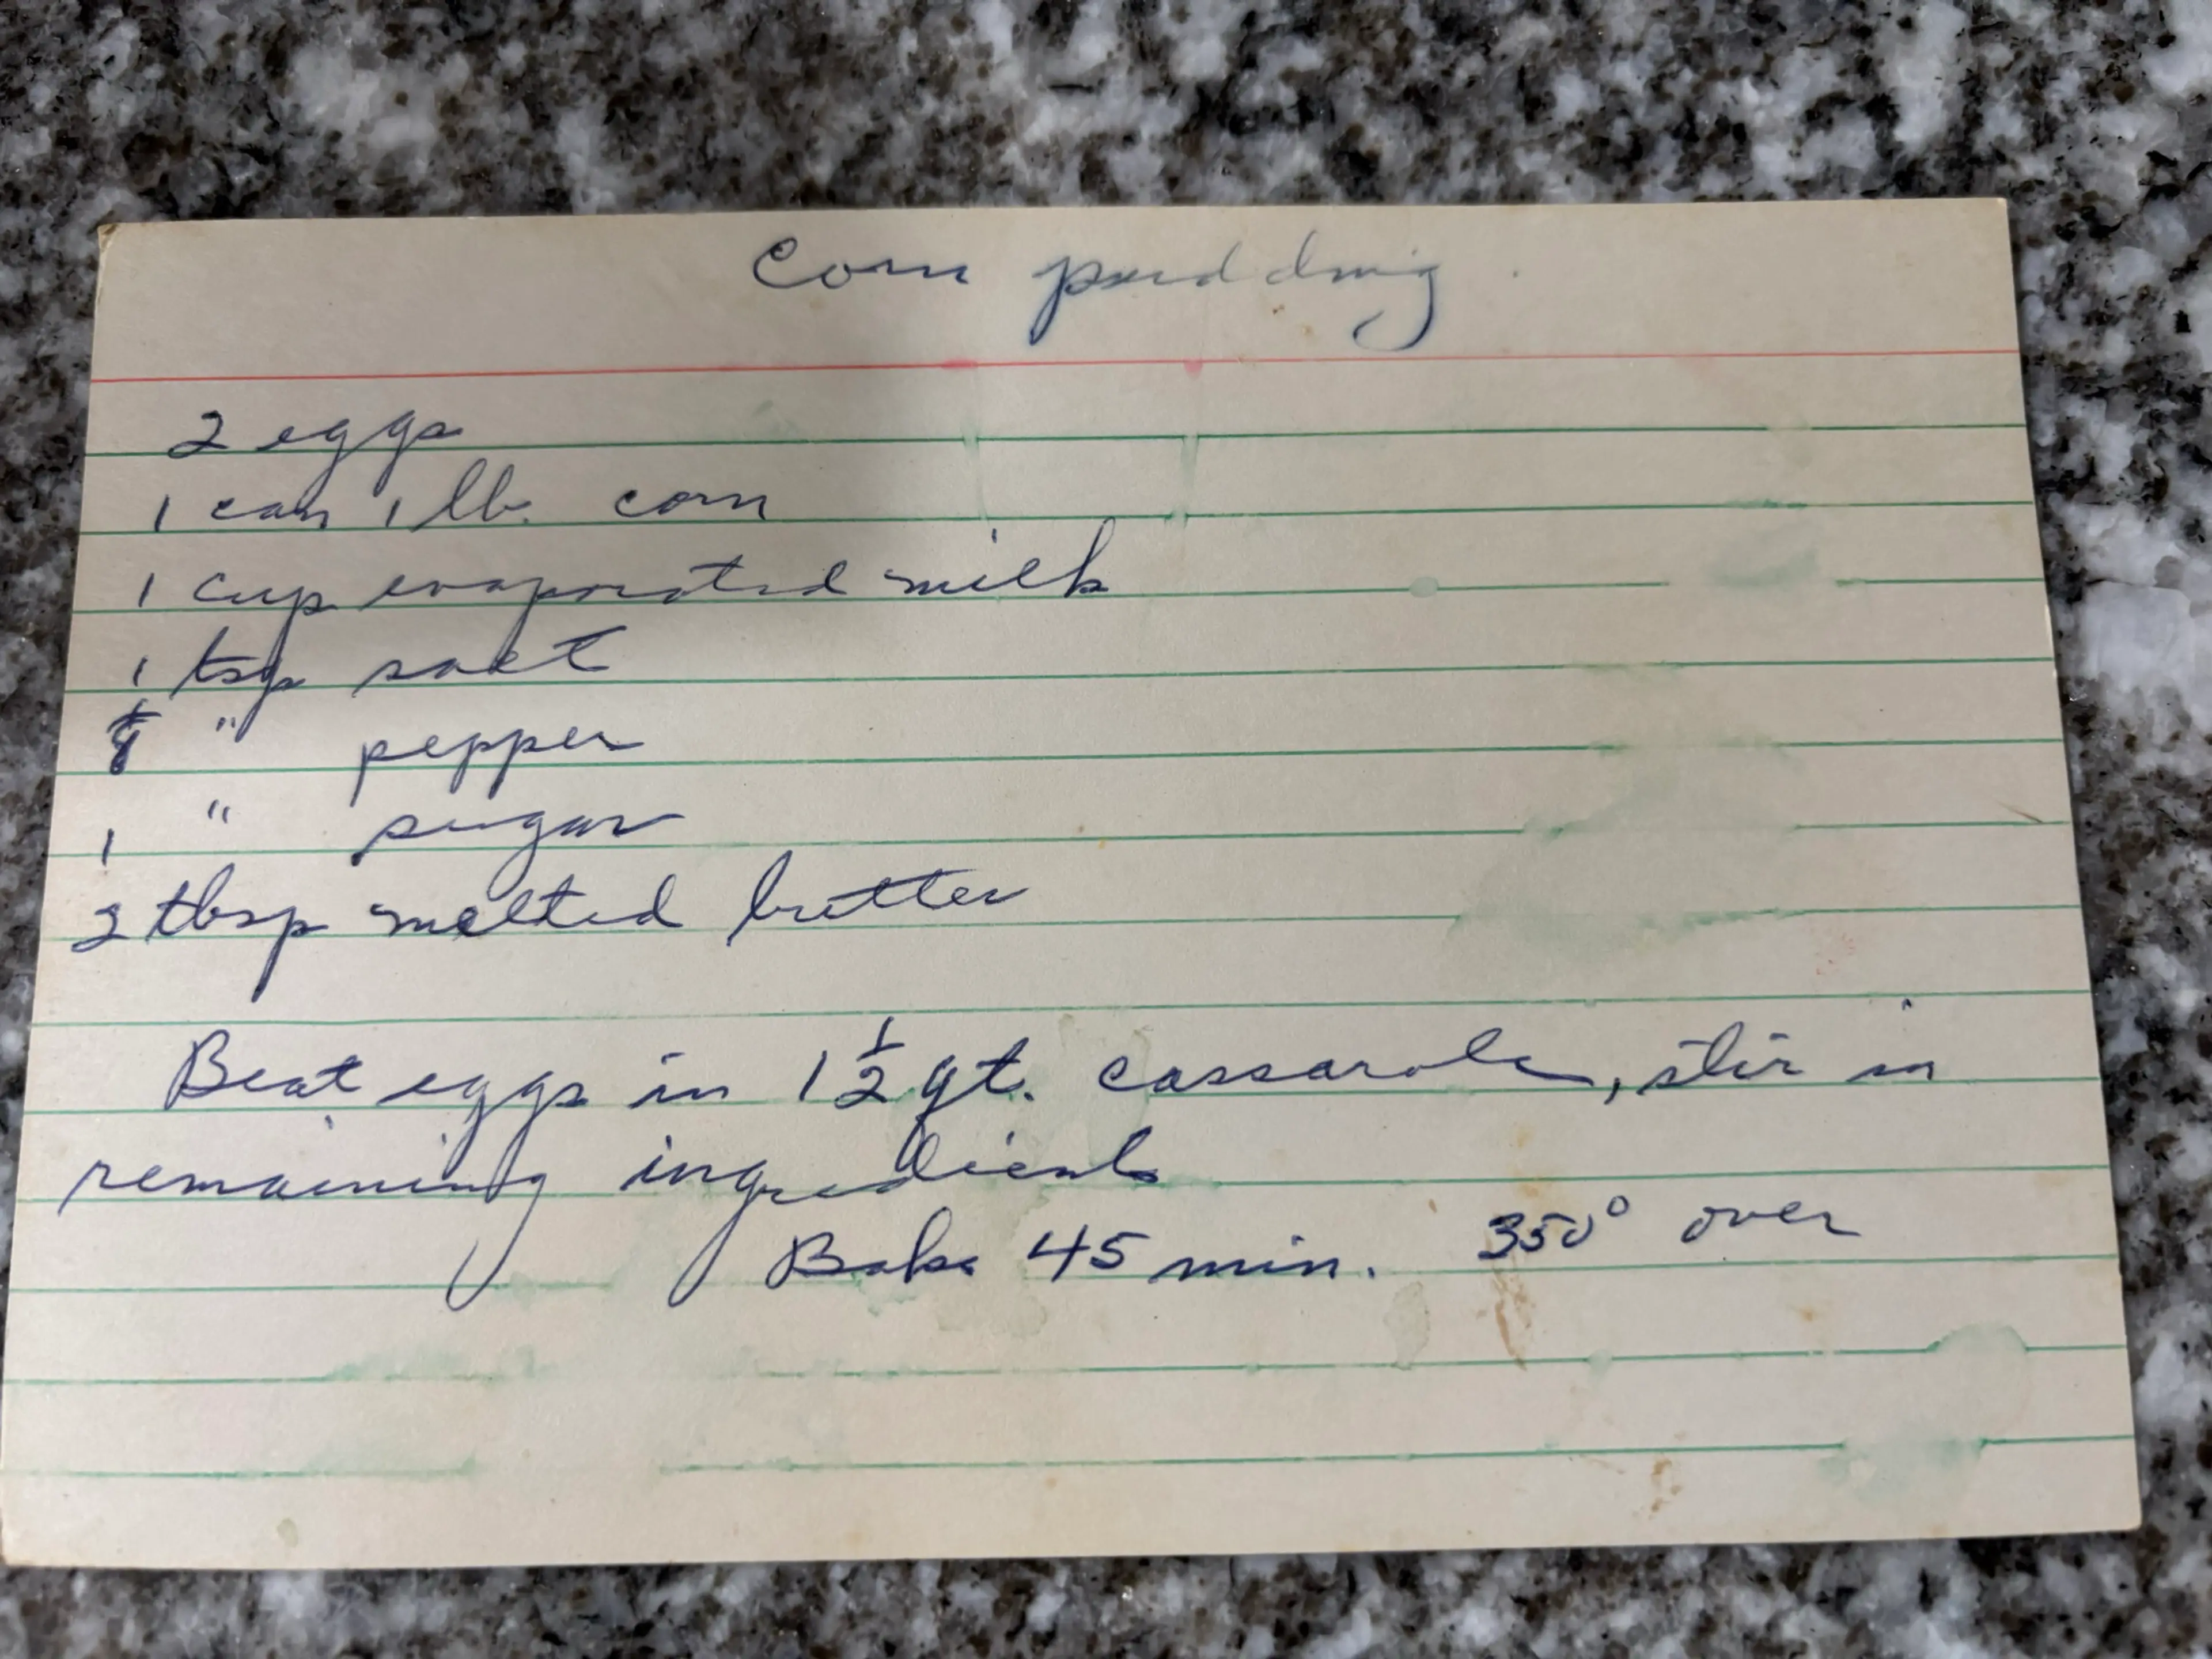 Corn pudding
2 eggs
1 can 1 lb. corn
1 cup evaporated milk
1 tsp salt
1/8 " pepper
1 " sugar
2 tbsp melted butter
Beat eggs in 1 1/2 qt. cassarole, stir in
remaining ingredients
Bake 45 min. 350° oven